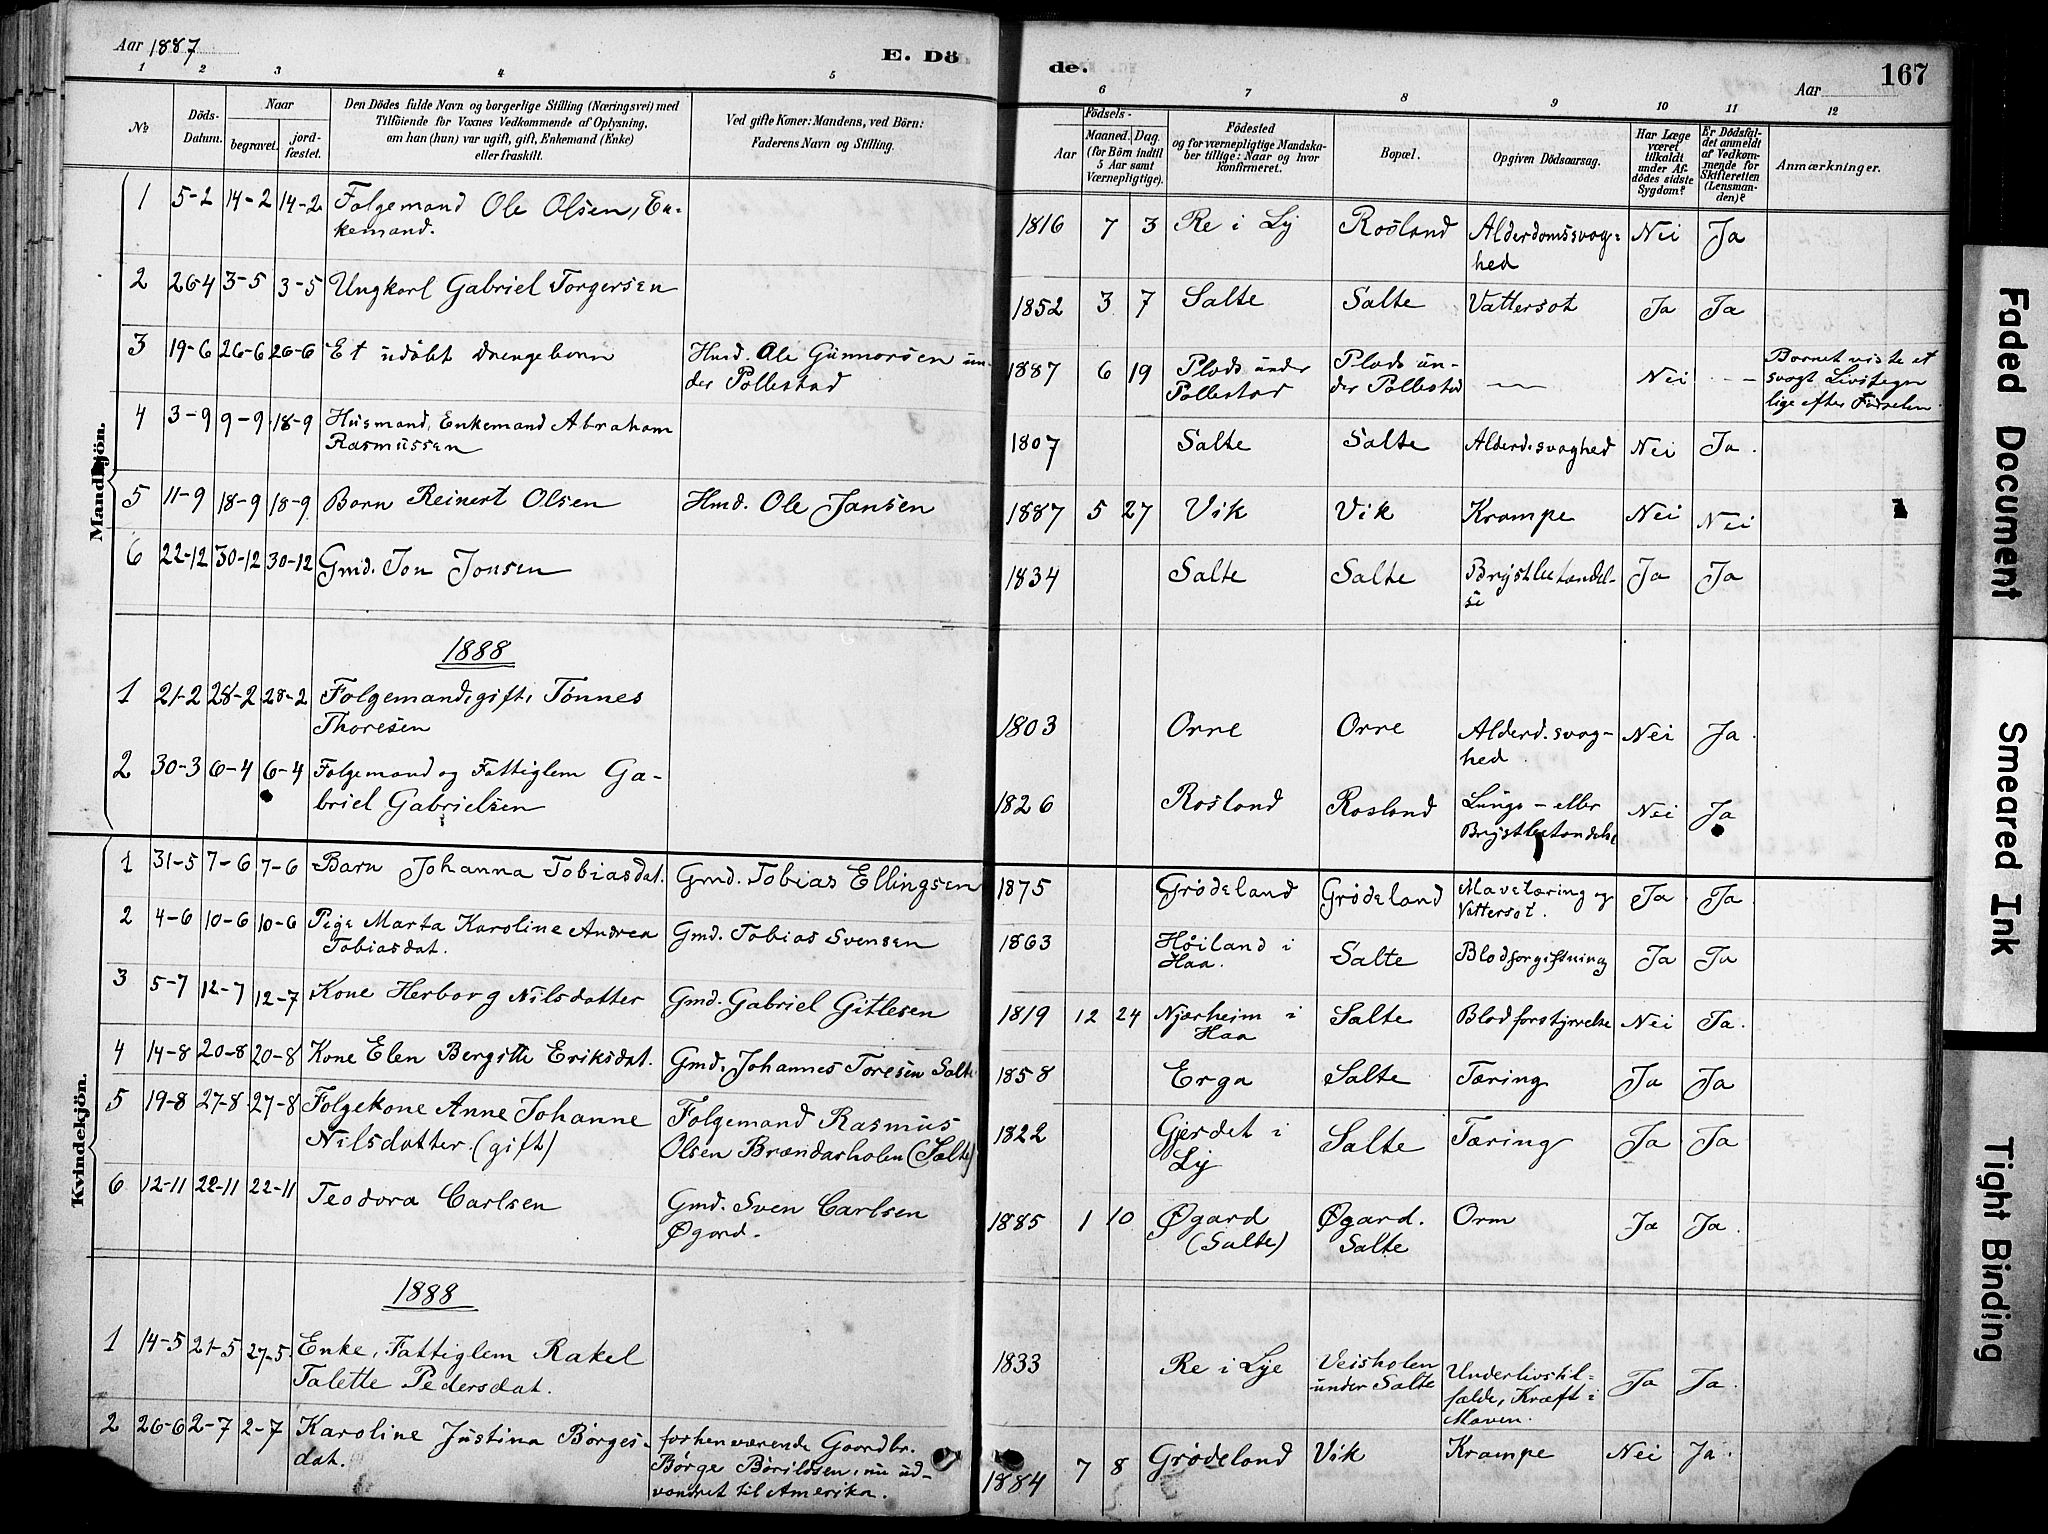 Aar 1887
E. Dö
de.
Aar
167
1 2 3 4 5 6 7 8 9 10 11 12
No
Döds-
Datum.
Naar
begravet.
jord-
fæstet.
Den Dödes fulde Navn og borgerlige Stilling (Næringsvei) med
Tilföiende for Voxnes Vedkommende af Oplysning,
om han (hun) var ugift, gift, Enkemand (Enke)
eller fraskilt.
Ved gifte Koner: Mandens, ved Börn:
Faderens Navn og Stilling.
Födsels-
Aar
Maaned. Dag.
(for Börn indtil
5 Aar samt
Værnepligtige).
Födested
og for værnepligtige Mandska-
ber tillige: Naar og hvor
konfirmeret.
Bopæl.
Opgiven Dödsaarsag.
Har Læge
været
tilkaldt
under Af-
dödes sidste
Sygdom?
Er Dödsfal-
det anmeldt
af Vedkom-
mende for
Skifteretten
(Lensman-
den)?
Anmærkninger.
Mandkjön.
1 5-2 14-2 14-2 Folgemand Ole Olsen, En-
kemand.
1816 7 3 Re i Ly Rosland Alderdomssvag-
hed Nei Ja
2 26-4 3-5 3-5 Ungkarl Gabriel Torgersen
1852 3 7 Salte Salte Vattersot Ja Ja
3 19-6 26-6 26-6 Et udøbt Drengebarn Husmd. Ole Gunnarsen un-
der Pollestad
1887 6 19 Plads under
Pollestad Plads un-
der Pollestad — Nei — Barnet viste et
svagt Livstegn
lige efter Fødselen.
4 3-9 9-9 18-9 Husmand, Enkemand Abraham
Rasmussen
1807 Salte Salte Alderd.svaghed Nei Ja.
5 11-9 18-9 18-9 Barn Reinert Olsen Husmd. Ole Jansen
1887 5 27 Vik Vik Krampe Nei Nei
6 22-12 30-12 30-12 Gmd. Jon Jonsen
1834 Salte Salte Brystbetændel-
se Ja Ja
1888
1 21-2 28-2 28-2 Folgemand, gift, Tønnes
Thoresen
1803 Orre Orre Alderd.svag-
hed Nei Ja.
2 30-3 6-4 6-4 Folgemand og Fattiglem Ga-
briel Gabrielsen
1826 Rosland Rosland Lunge- eller
Brystbetændelse Nei Ja
Kvindekjön.
1 31-5 7-6 7-6 Barn Johanna Tobiasdat. Gmd. Tobias Ellingsen
1875 Grødeland Grødeland Mavetæring og
Vattersot. Ja Ja
2 4-6 10-6 10-6 Pige Marta Karoline Andrea
Tobiasdat. Gmd. Tobias Svensen
1863 Høiland i
Haa. Salte Blodforgiftning Ja Ja
3 5-7 12-7 12-7 Kone Herborg Nilsdatter Gmd. Gabriel Gitlesen
1819 12 24 Njærheim i
Haa Salte Blodforstyrrelse Nei Ja.
4 14-8 20-8 20-8 Kone Elen Bergitte Eriksdat. Gmd. Johannes Toresen Salte
1858 Erga Salte Tæring Ja Ja
5 19-8 27-8 27-8 Folgekone Anne Johanne
Nilsdatter (gift) Folgemand Rasmus
Olsen Brændarholen (Salte)
1822 Gjerdet i
Ly Salte Tæring Ja Ja
6 12-11 22-11 22-11 Teodora Carlsen Gmd. Sven Carlsen
Øgard.
1885 1 10 Øgard
(Salte) Øgard.
Salte Orm Ja Ja.
1888
1 14-5 21-5 27-5. Enke, Fattiglem Rakel
Talette Pedersdat.
1833 Re i Lye Veisholen
under Salte Underlivstil-
fælde, Kræft i
Maven. Ja Ja.
2 26-6 2-7 2-7 Karoline Justina Børges-
dat. forhenværende Gaardbr.
Børge Børildsen, nu ud-
vandret til Amerika.
1884 7 8 Grødeland Vik Krampe Nei Ja.
Faded Document
Smeared Ink
Tight Binding